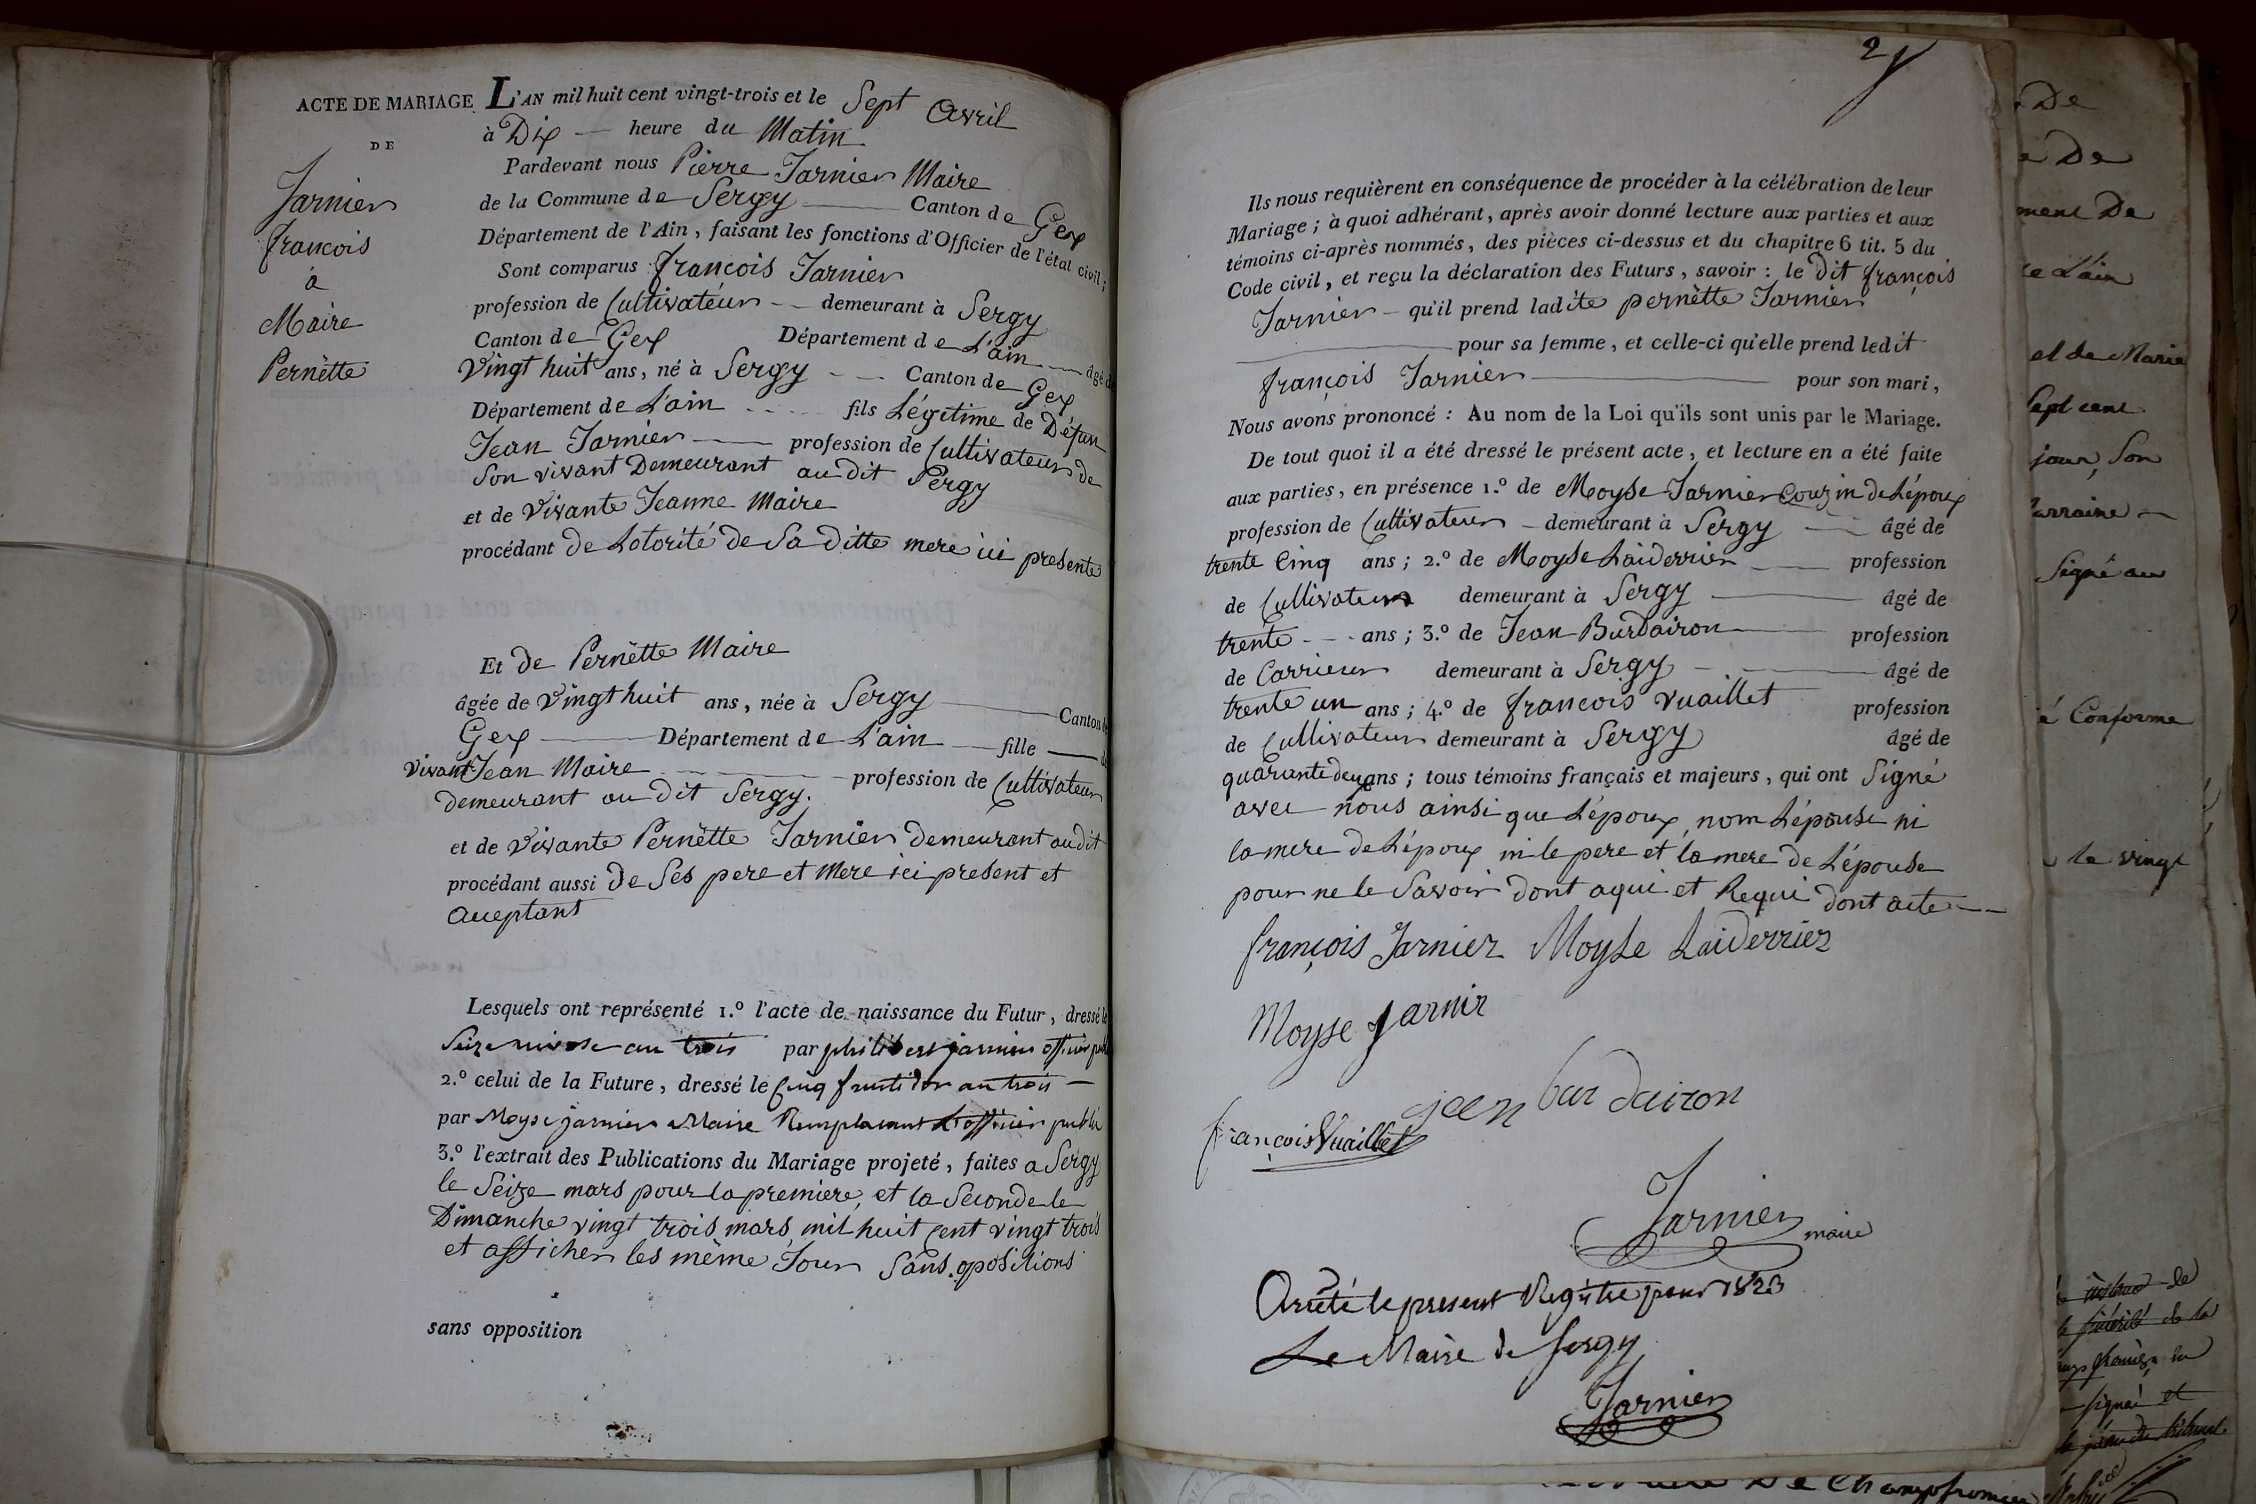 ACTE DE MARIAGE
DE
Jarnier
françois
à
Maire
Pernètte
L'AN mil huit cent vingt-trois et le Sept Avril
à Dix — heure du Matin
Pardevant nous Pierre Jarnier Maire
de la Commune de Sergy — Canton de Gex
Département de l'Ain, faisant les fonctions d'Officier de l'état civil;
Sont comparus françois Jarnier
profession de Cultivatéur — demeurant à Sergy
Canton de Gex Département de L'ain — âgé de
Vingt huit ans, né à Sergy — Canton de Gex
Département de L'ain fils Légitime de Défun
Jean Jarnier — profession de Cultivateur de
Son vivant Demeurant au dit Sergy
et de Vivante Jeanne Maire
procédant de Lotorité de Sa ditte mere ici presente
Et de Pernètte Maire
âgée de Vingt huit ans, née à Sergy — Canton de
Gex — Département de L'ain — fille — de
vivant Jean Maire — profession de Cultivateur
demeurant au dit Sergy.
et de Vivante Pernètte Jarnier demeurant au dit
procédant aussi de Ses pere et Mere ici present et
aceptant
Lesquels ont représenté 1.º l'acte de naissance du Futur, dressé le
Seize nivose an trois par philibert jarnier officier publ
2.º celui de la Future, dressé le Cinq fructidor an trois —
par Moyse jarnier Maire Remplacant L'officier public
3.º l'extrait des Publications du Mariage projeté, faites a Sergy
le Seize mars pour la premiere, et la Seconde le
Dimanche vingt trois mars mil huit Cent vingt trois
et afficher les même Jour Sans opositions
sans opposition
2
Ils nous requièrent en conséquence de procéder à la célébration de leur
Mariage; à quoi adhérant, après avoir donné lecture aux parties et aux
témoins ci-après nommés, des pièces ci-dessus et du chapitre 6 tit. 5 du
Code civil, et reçu la déclaration des Futurs, savoir: le dit françois
Jarnier — qu'il prend ladite pernètte Jarnier
— pour sa femme, et celle-ci qu'elle prend ledit
françois Jarnier — pour son mari,
Nous avons prononcé: Au nom de la Loi qu'ils sont unis par le Mariage.
De tout quoi il a été dressé le présent acte, et lecture en a été faite
aux parties, en présence 1.º de Moyse Jarnier Couzin de Lépoux
profession de Cultivateur — demeurant à Sergy — âgé de
trente Cinq ans; 2.º de Moyse Laiderrier — profession
de Cultivateur demeurant à Sergy — âgé de
trente — ans; 3.º de Jean Burdairon — profession
de Carrieur demeurant à Sergy — âgé de
trente un ans; 4.º de françois Vuaillet profession
de Cultivateur demeurant à Sergy âgé de
quarante deux ans; tous témoins français et majeurs, qui ont Signé
avec nous ainsi que Lépoux, nom Lépouse ni
la mere de Lépoux ni le pere et la mere de Lépouse
pour ne le Savoir dont aqui et Requi dont acte —
françois Jarnier Moyse Laiderrier
Moyse Jarnir
jean burdairon
françois Vuaillet
Jarnier maire
Arrêté le present Registre pour 1823
Le Maire de Sergy
Jarnier
De
De
ment De
ce L'ain
et de Marie
Sept cent
jour, Son
Signé au
é Conforme
le vingt
De Champfromier